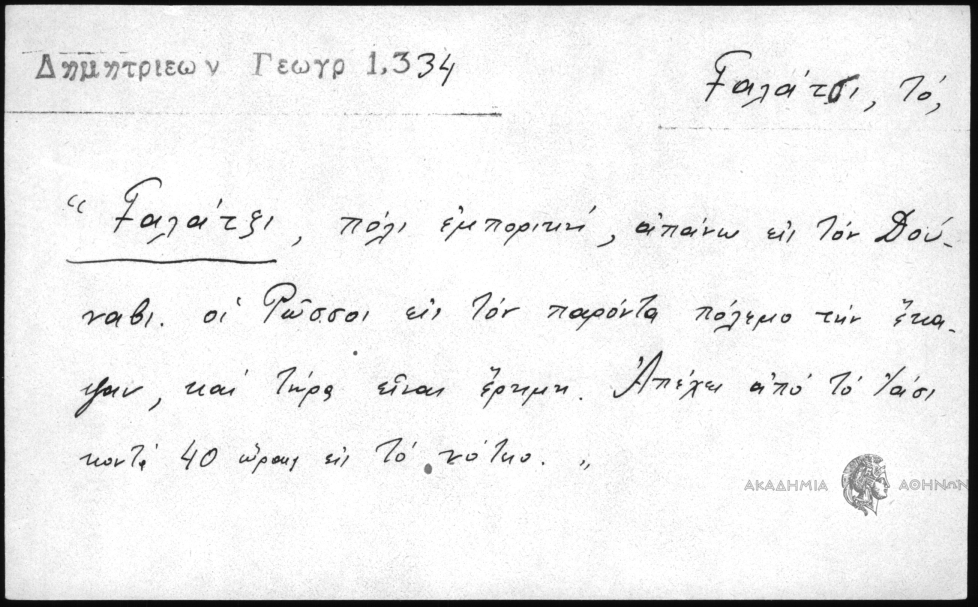 Δημητριεων Γεωγρ 1,334
Γαλάτσι, τό,
“ Γαλάτζι, πόλι ἐμπορική, ἀπάνω εἰς τόν Δού-
ναβι. οἱ Ρῶσσοι εἰς τόν παρόντα πόλεμο τήν ἔκα-
ψαν, καί τώρα εἶναι ἔρημη. Ἀπέχει ἀπό τό Ιάσι
κοντά 40 ὥραις εἰς τό νότιο. „
ΑΚΑΔΗΜΙΑ ΑΘΗΝΩΝ